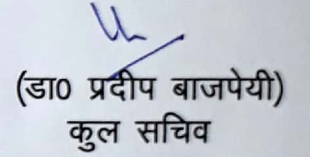 (डा0 प्रदीप बाजपेयी)
कुल सचिव